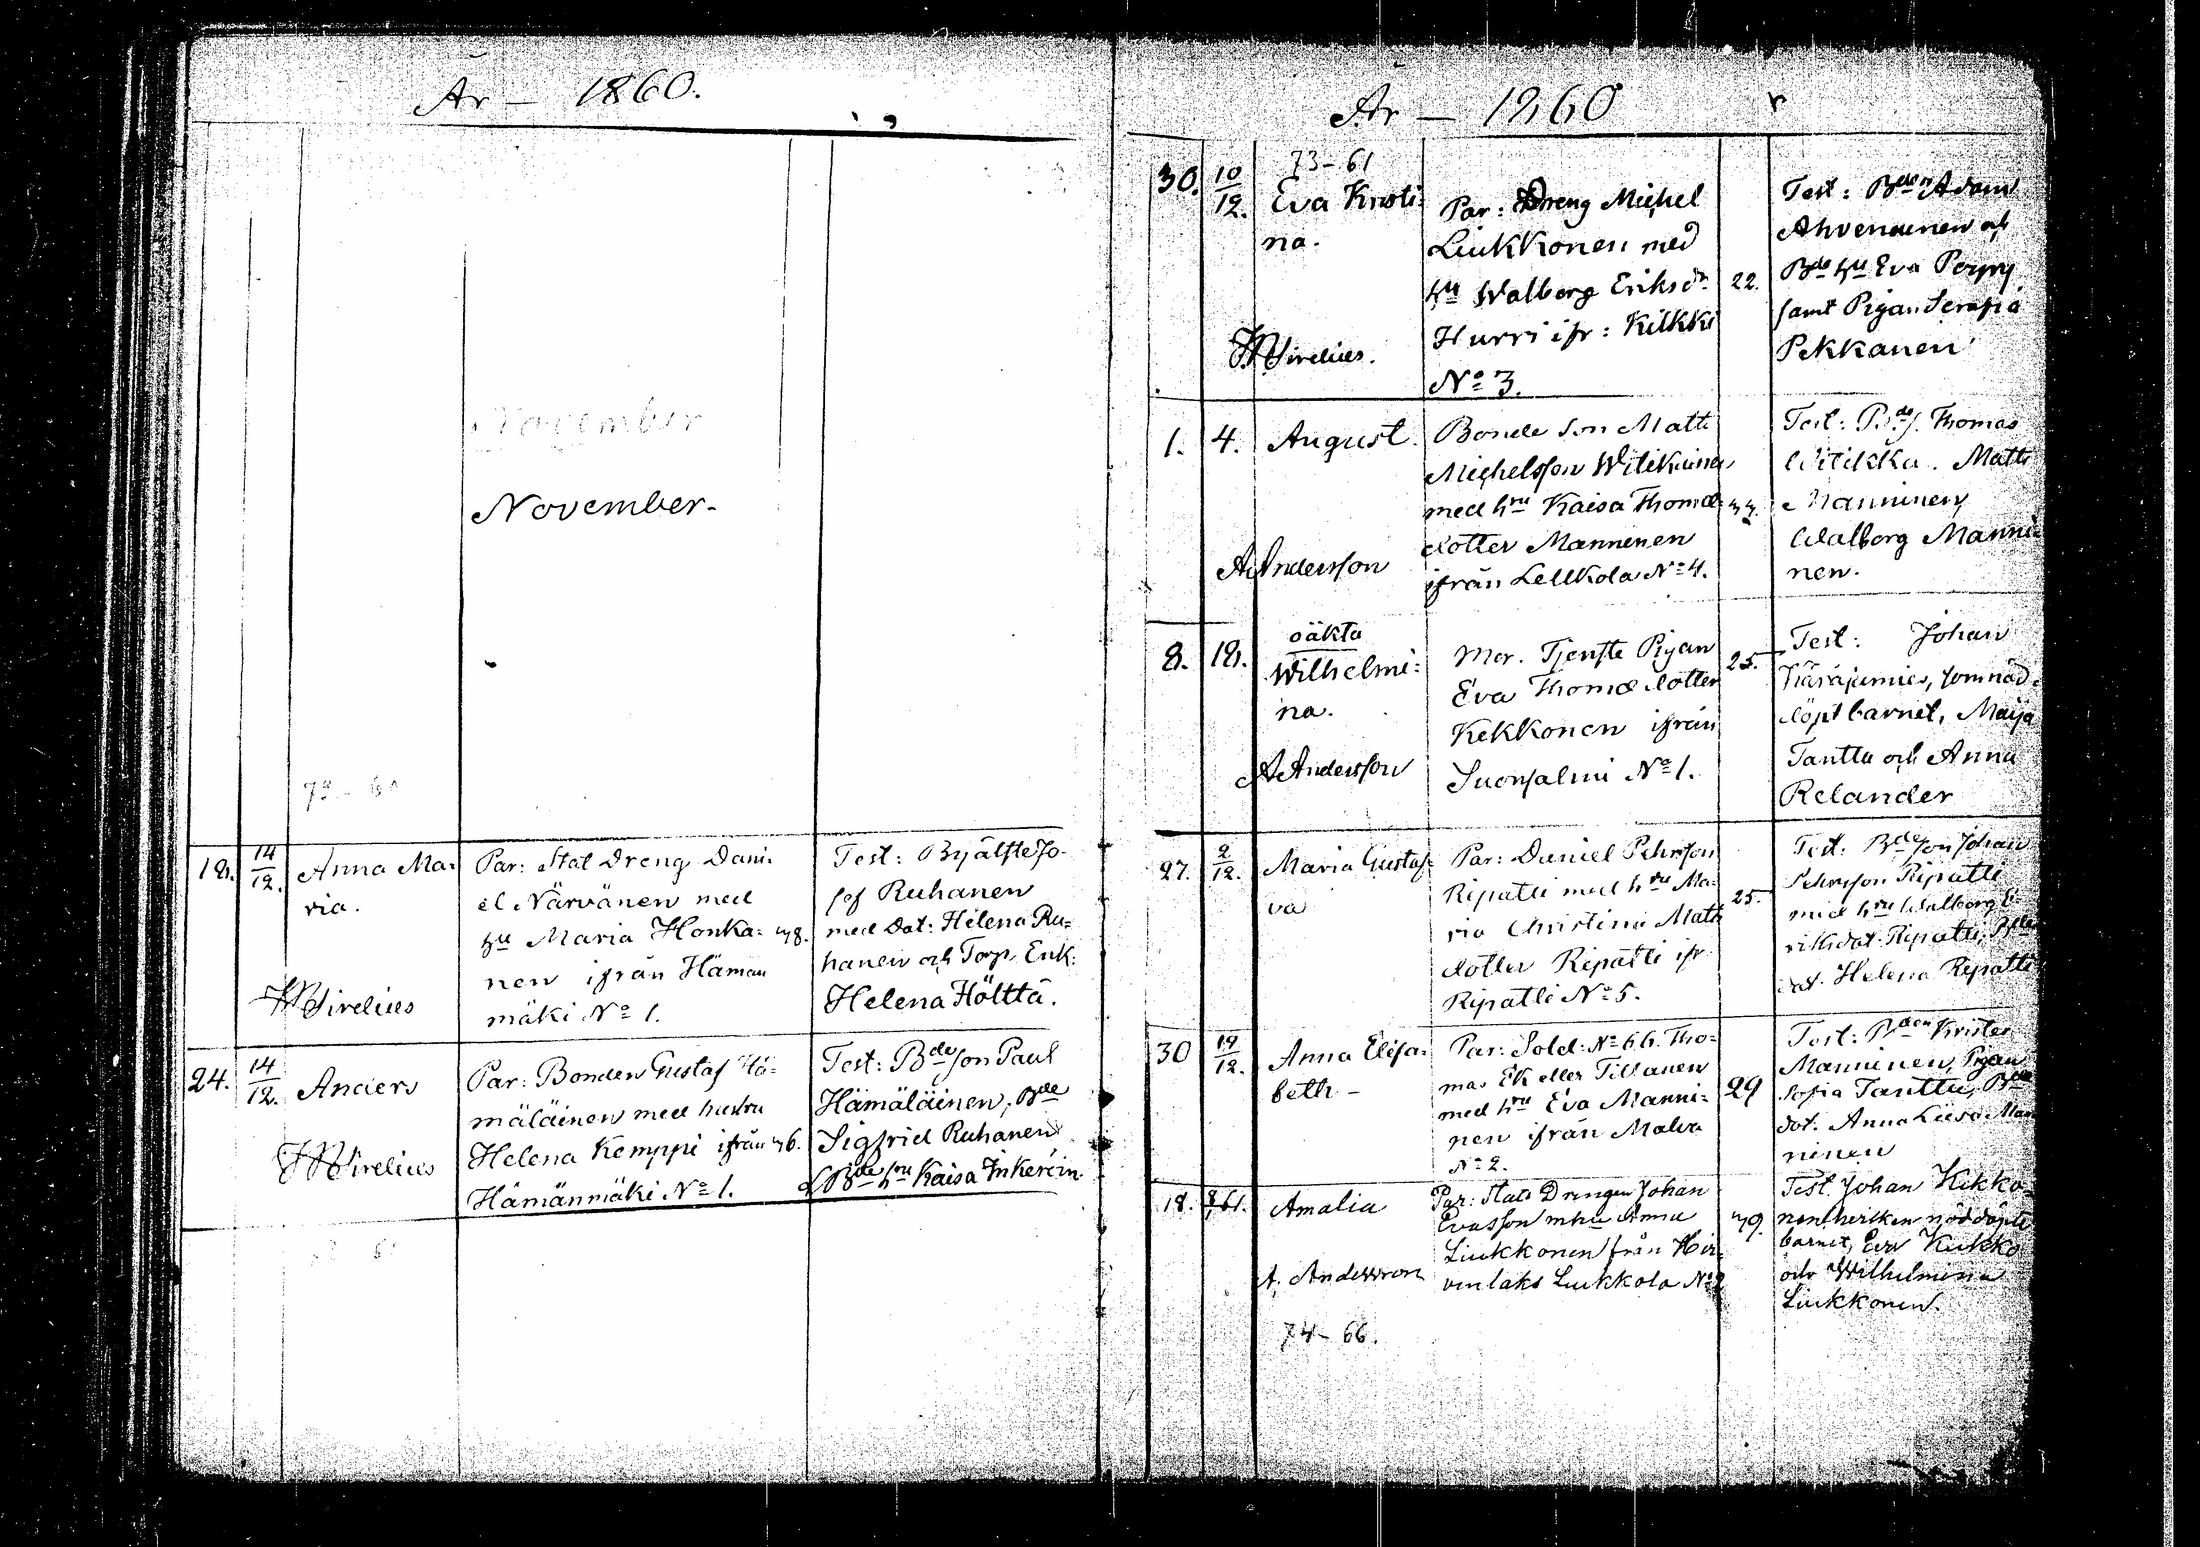 År — 1860.
November
November.
73 — 60
18. 14/12. Anna Ma=
ria.
Par: Stat Dreng Dani=
el Närvänen med
hu Maria Honka=
nen ifrån Häman
mäki No 1.
38.
Test: Byälste Jo-
sef Ruhanen
med Dot: Helena Ru=
hanen och Torp. Enk:
Helena Hölttä.
Sirelius
24. 14/12. Anders
Par: Bonden Gustaf Hä=
mäläinen med hustru
Helena Kemppi ifrån
Hämänmäki No 1.
36.
Test: Bdeson Paul
Hämäläinen, Bde
Sigfrid Ruhanen
Bde hru Kaisa Inkeröin.
Sirelius
År — 1860
73 - 61
30. 10/12. Eva Kristi=
na.
Par: Dreng Michel
Liukkonen med
hu Walborg Eriksdr
Hurri ifr: Kilkki
No 3.
22.
Test: Bden Adam
Ahvenainen och
Bde hu Eva Poyry
samt Pigan Serafia
Pekkanen
Sirelius.
1. 4. August.
Bonde Son Matts
Michelsson Witikainen
med hru Kaisa Thomæ
dotter Manninen
ifrån Lellkola No 4.
33.
Test: Bdes. Thomas
Witikka. Matts
Manninen,
Walborg Manni=
nen.
A Andersson
8. 18. oäkta
Wilhelmi=
na.
Mor. Tjenste Pigan
Eva Thomædotter
Kekkonen ifrån
Suonsalmi No 1.
25.
Test: Johan
Käräjämies, som nöd=
döpt barnet, Maija
Tanttu och Anna
Relander
A Andersson
27. 2/12. Maria Gustaf=
va
Par: Daniel Pehrson
Ripatti med hru Ma=
ria Christina Matts
dotter Ripatti ifr
Ripatti No 5.
25.
Test: Bdeson Johan
Pehrsson Ripatti
med hru Walborg E=
riksdot. Ripatti, Bde
dot. Helena Ripatti
30 19/12. Anna Elisa=
beth -
Par: Sold: No 66. Tho=
mas Ek eller Tillanen
med hru Eva Manni=
nen ifrån Malva
No 2.
29
Test: Bden Krister
Manninen, Pigan
Sofia Tanttu, Bde
dot. Anna Liisa Man
ninen
18. 8/61. Amalia
Par: Stats Drengen Johan
Evasson m hru Anna
Liukkonen från Hir=
venlaks Liukkola No 2
39.
Test. Johan Kekko=
nen hvilken nöddöpte
barnet, Eva Kukko
och Wilhelmina
Liukkonen.
A. Andersson
74 - 66.